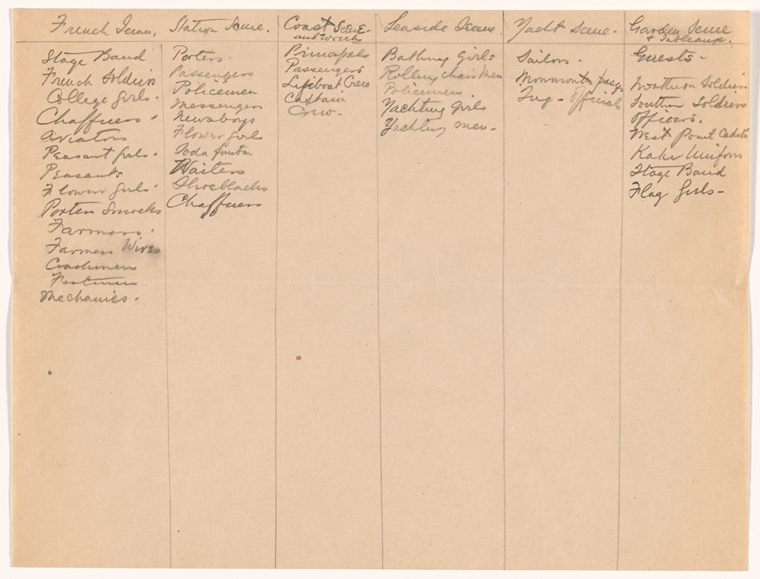 French Scene.
Stage Band
French Soldiers
College Girls.
Chaffuers.
Aviators
Peasant Gals.
Peasants
Flower Girls.
Porters Smocks
Farmers.
Farmers Wives
Coachmen
Footmen
Mechanics.
Station Scene.
Porters.
Passengers
Policemen
Messengers
Newsboys
Flower Girls
Soda
Waiters
Shoeblacks
Chaffuers
Coast Scene
and Wreck
Principals
Passengers
Lifeboat Crew
Captain
Crew.
Seaside Scene.
Bathing Girls
Rolling chair Men
Policemen
Yachting Girls
Yachting men.
Yacht Scene.
Sailors.
Tug. official
Garden Scene
& Tableaux.
Guests.
Northern Soldiers
Southern Soldiers
Officers.
West Point Cadets
Kahki Uniform
Stage Band
Flag Girls-